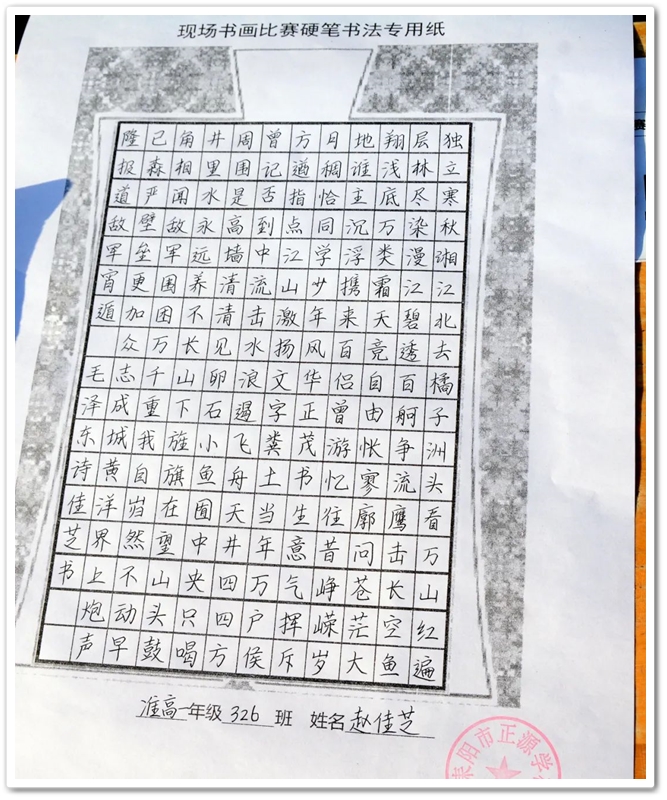 现场书画比赛硬笔书法专用纸
独立寒秋湘江北去橘子洲头看万山红遍
层林尽染漫江碧透百舸争流鹰击长空鱼
翔浅底万类霜天竞自由怅寥廓问苍茫大
地谁主沉浮携来百侣曾游忆往昔峥嵘岁
月稠恰同学少年风华正茂书生意气挥斥
方遒指点江山激扬文字粪土当年万户侯
曾记否到中流击水浪遏飞舟天井四四方
周围是高墙清清见卵石小鱼囿中央只喝
井里水永远养不长山下旌旗在望山头鼓
角相闻敌军围困万千重我自岿然不动早
已森严壁垒更加众志成城黄洋界上炮声
隆报道敌军宵遁 毛泽东诗佳芝书
准高一年级 326 班 姓名 赵佳芝
阳市正源学